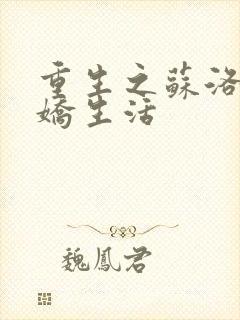 重生之蘇洛
嬌生活
魏鳳君